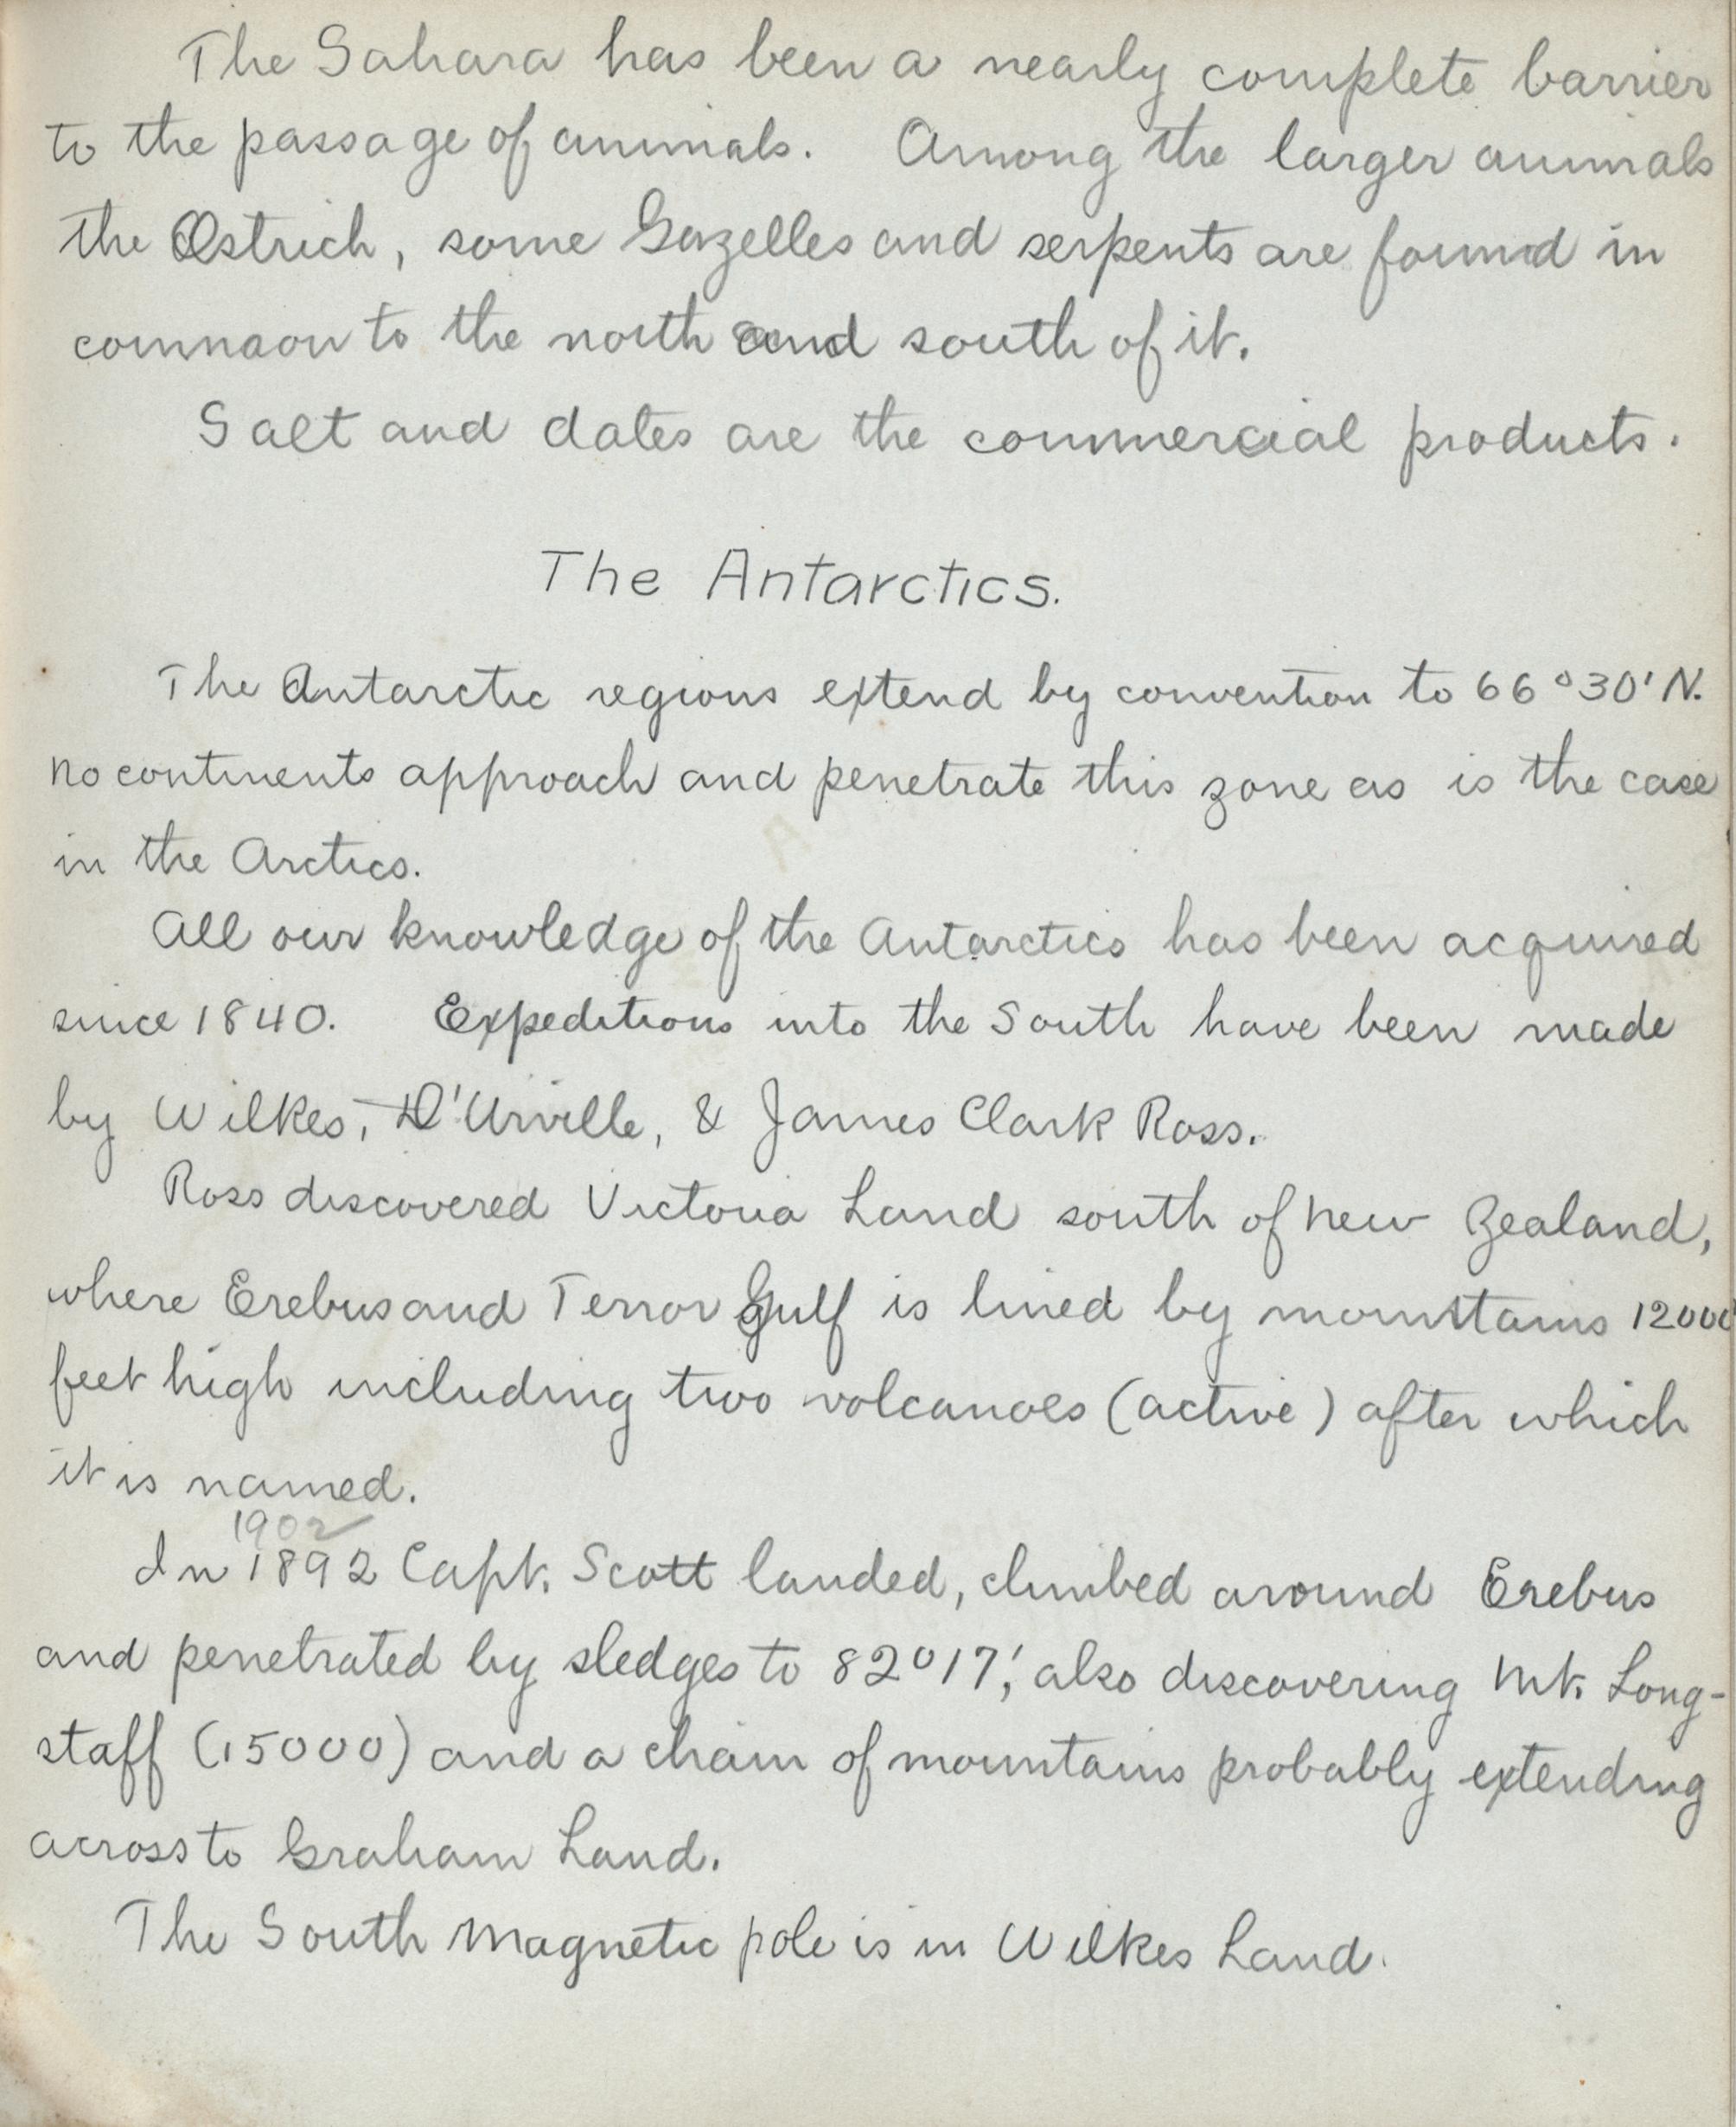 The Sahara has been a nearly complete barrier
to the passage of animals. Among the larger animals
the Ostrich, some Gazelles and serpents are found in
common to the north and south of it.
Salt and dates are the commercial products.
The Antarctics.
The Antarctic regions extend by convention to 66°30' N.
No continents approach and penetrate this zone as is the case
in the Arctics.
All our knowledge of the Antarctics has been acquired
since 1840. Expeditions into the South have been made
by Wilkes, D'Urville, & James Clark Ross.
Ross discovered Victoria Land south of New Zealand,
where Erebus and Terror Gulf is lined by mountains 12000
feet high including two volcanoes (active) after which
it is named.
1902
In 1892 Capt. Scott landed, climbed around Erebus
and penetrated by sledges to 82°17', also discovering Mt. Long-
staff (15000) and a chain of mountains probably extending
across to Graham Land.
The South Magnetic pole is in Wilkes Land.